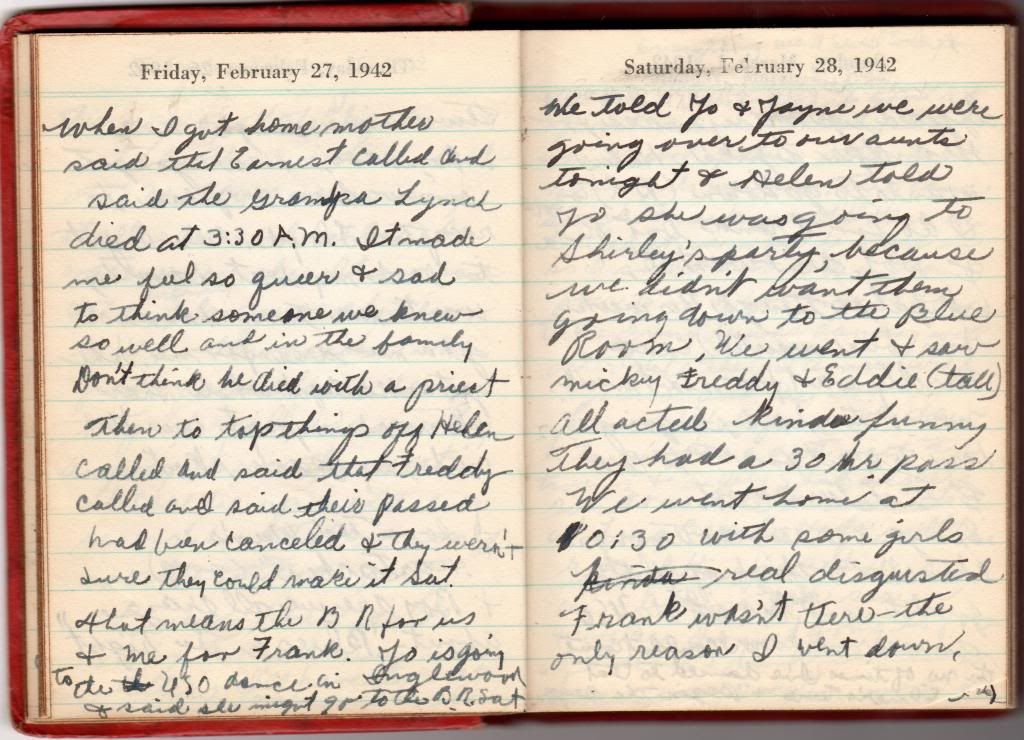 Friday, February 27, 1942
When I got home mother
said that Earnest called and
said the Grampa Lynch
died at 3:30 A.M. It made
me feel so queer & sad
to think someone we knew
so well and in the family
Don't think he died with a priest
Then to top things off Helen
called and said that Freddy
called and said their passed
had been canceled & they weren't
sure they could make it Sat.
that means the B R for us
& me for Frank. Jo is going
to the USO dance in Inglewood
& said she might go to the B.R. Sat
Saturday, February 28, 1942
We told Jo & Jayne we were
going over to our aunts
tonight & Helen told
Jo she was going to
Shirley's party, because
we didn't want them
going down to the Blue
Room. We went & saw
micky Freddy & Eddie (tall)
all acted kinda funny
They had a 30 hr pass
We went home at
10:30 with some girls
kinda real disgusted
Frank wasn't there - the
only reason I went down.